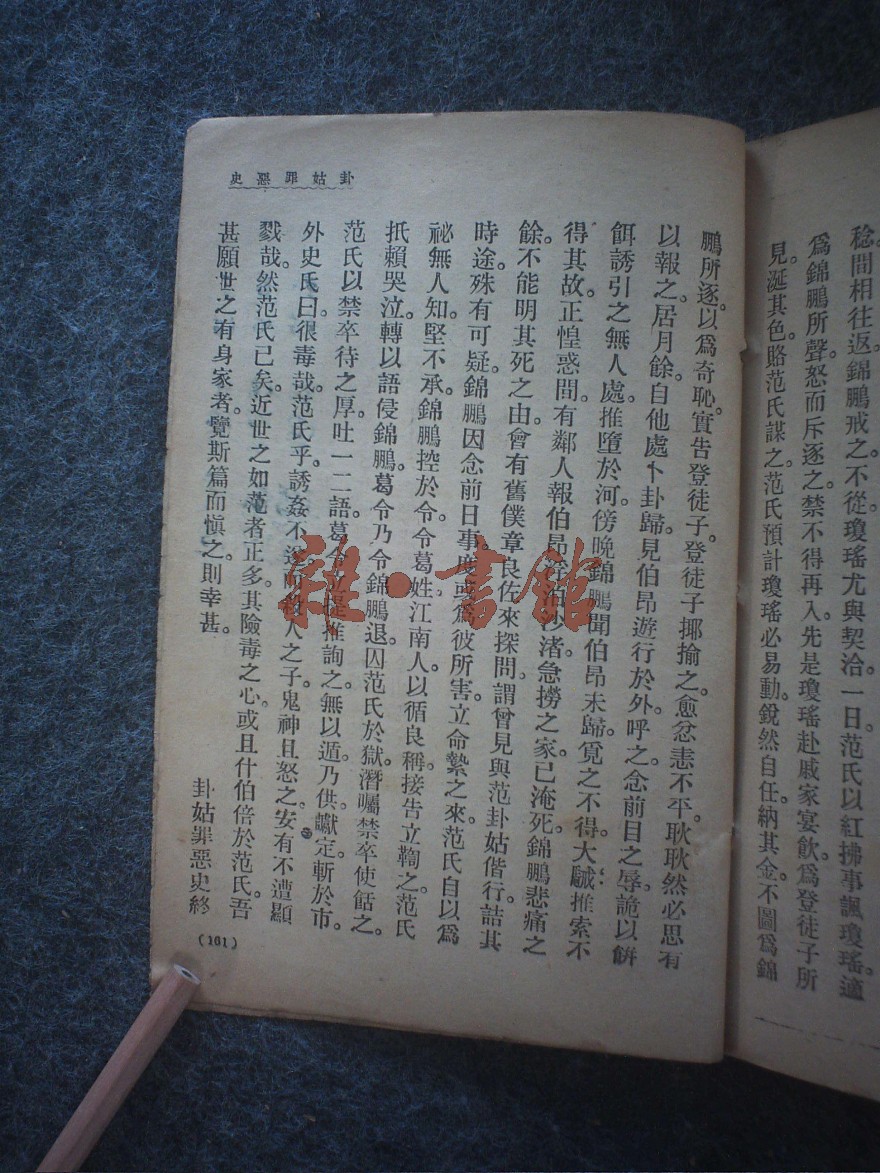 稔間相往返。錦鵬戒之不從。瓊瑤尤與契洽。一日范氏以紅拂事諷瓊瑤。適
爲錦鵬所聲。怒而斥逐之。禁不得再入。先是瓊瑤赴戚家宴飲。爲登徒子所
見。涎其色。賂范氏謀之。范氏預計瓊瑤必易動。銳然自任。納其金。不圖爲錦
卦姑罪惡史
鵬所逐。以爲奇恥。實告登徒子。登徒子揶揄之。愈忿恚不平。耿耿然必思有
以報之。居月餘。自他處卜卦歸。見伯昂遊行於外。呼之。念前日之辱。詭以餠
餌誘引之無人處。推墮於河。傍晚錦鵬聞伯昂未歸。覓之不得。大駴。推索不
得其故。正惶惑問。有鄰人報伯昂浮沙渚。急撈之家。已淹死。錦鵬悲痛之
餘。不能明其死之由。會有舊僕章良佐來探問。謂曾見與范卦姑偕行。詰其
時途。殊有可疑。錦鵬因念前日事。或爲彼所害。立命縶之來。范氏自以爲
祕無人知。堅不承。錦鵬控於令。令葛姓。江南人。以循良稱。接告立鞫之。范氏
抵賴哭泣。轉以語侵錦鵬。葛令乃令錦鵬退。囚范氏於獄。潛囑禁卒使餂之。
范氏以禁卒待之厚。吐一二語。葛令立提推詢之。無以遁。乃供。讞定。斬於市。
外史氏曰。很毒哉。范氏乎。誘姦不遂。殺人之子。鬼神且怒之。安有不遭顯
戮哉。然范氏已矣。近世之如范者正多。其險毒之心。或且什伯倍於范氏。吾
甚願世之有身家者。覽斯篇而愼之。則幸甚。
卦姑罪惡史終
(161)
雜·書館